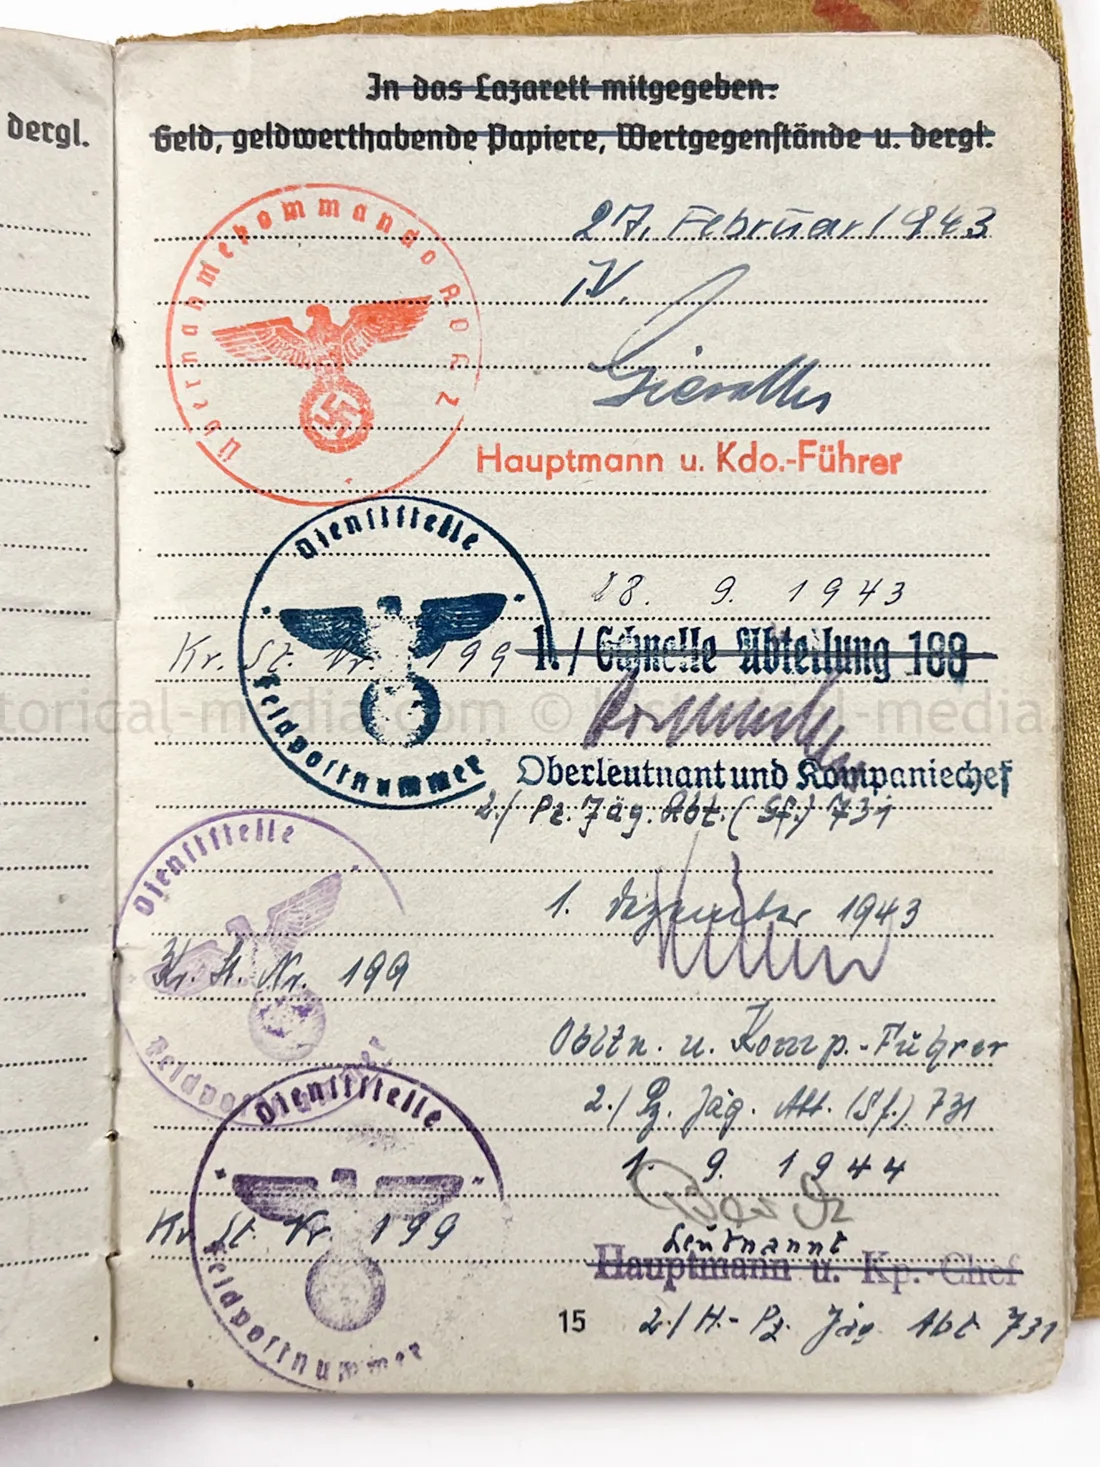 dergl.
In das Lazarett mitgegeben:
Geld, geldwerthabende Papiere, Wertgegenstände u. dergl.
Übernahmekommando
27. Februar 1943
i.V.
Hauptmann u. Kdo.-Führer
Dienststelle
Feldpostnummer
28. 9. 1943
Kr. St. Nr. 199
1./ Schnelle Abteilung 188
Oberleutnant und Kompaniechef
2./ Pz. Jäg. Abt. (Sf.) 731
Dienststelle
1. Dezember 1943
Kr. St. Nr. 199
Obltn. u. Komp.-Führer
2./ Pz. Jäg. Abt. (Sf.) 731
Dienststelle
Feldpostnummer
1. 9. 1944
Kr. St. Nr. 199
Leutnannt
Hauptmann u. Kp.-Chef
2./ H.- Pz. Jäg. Abt 731
15